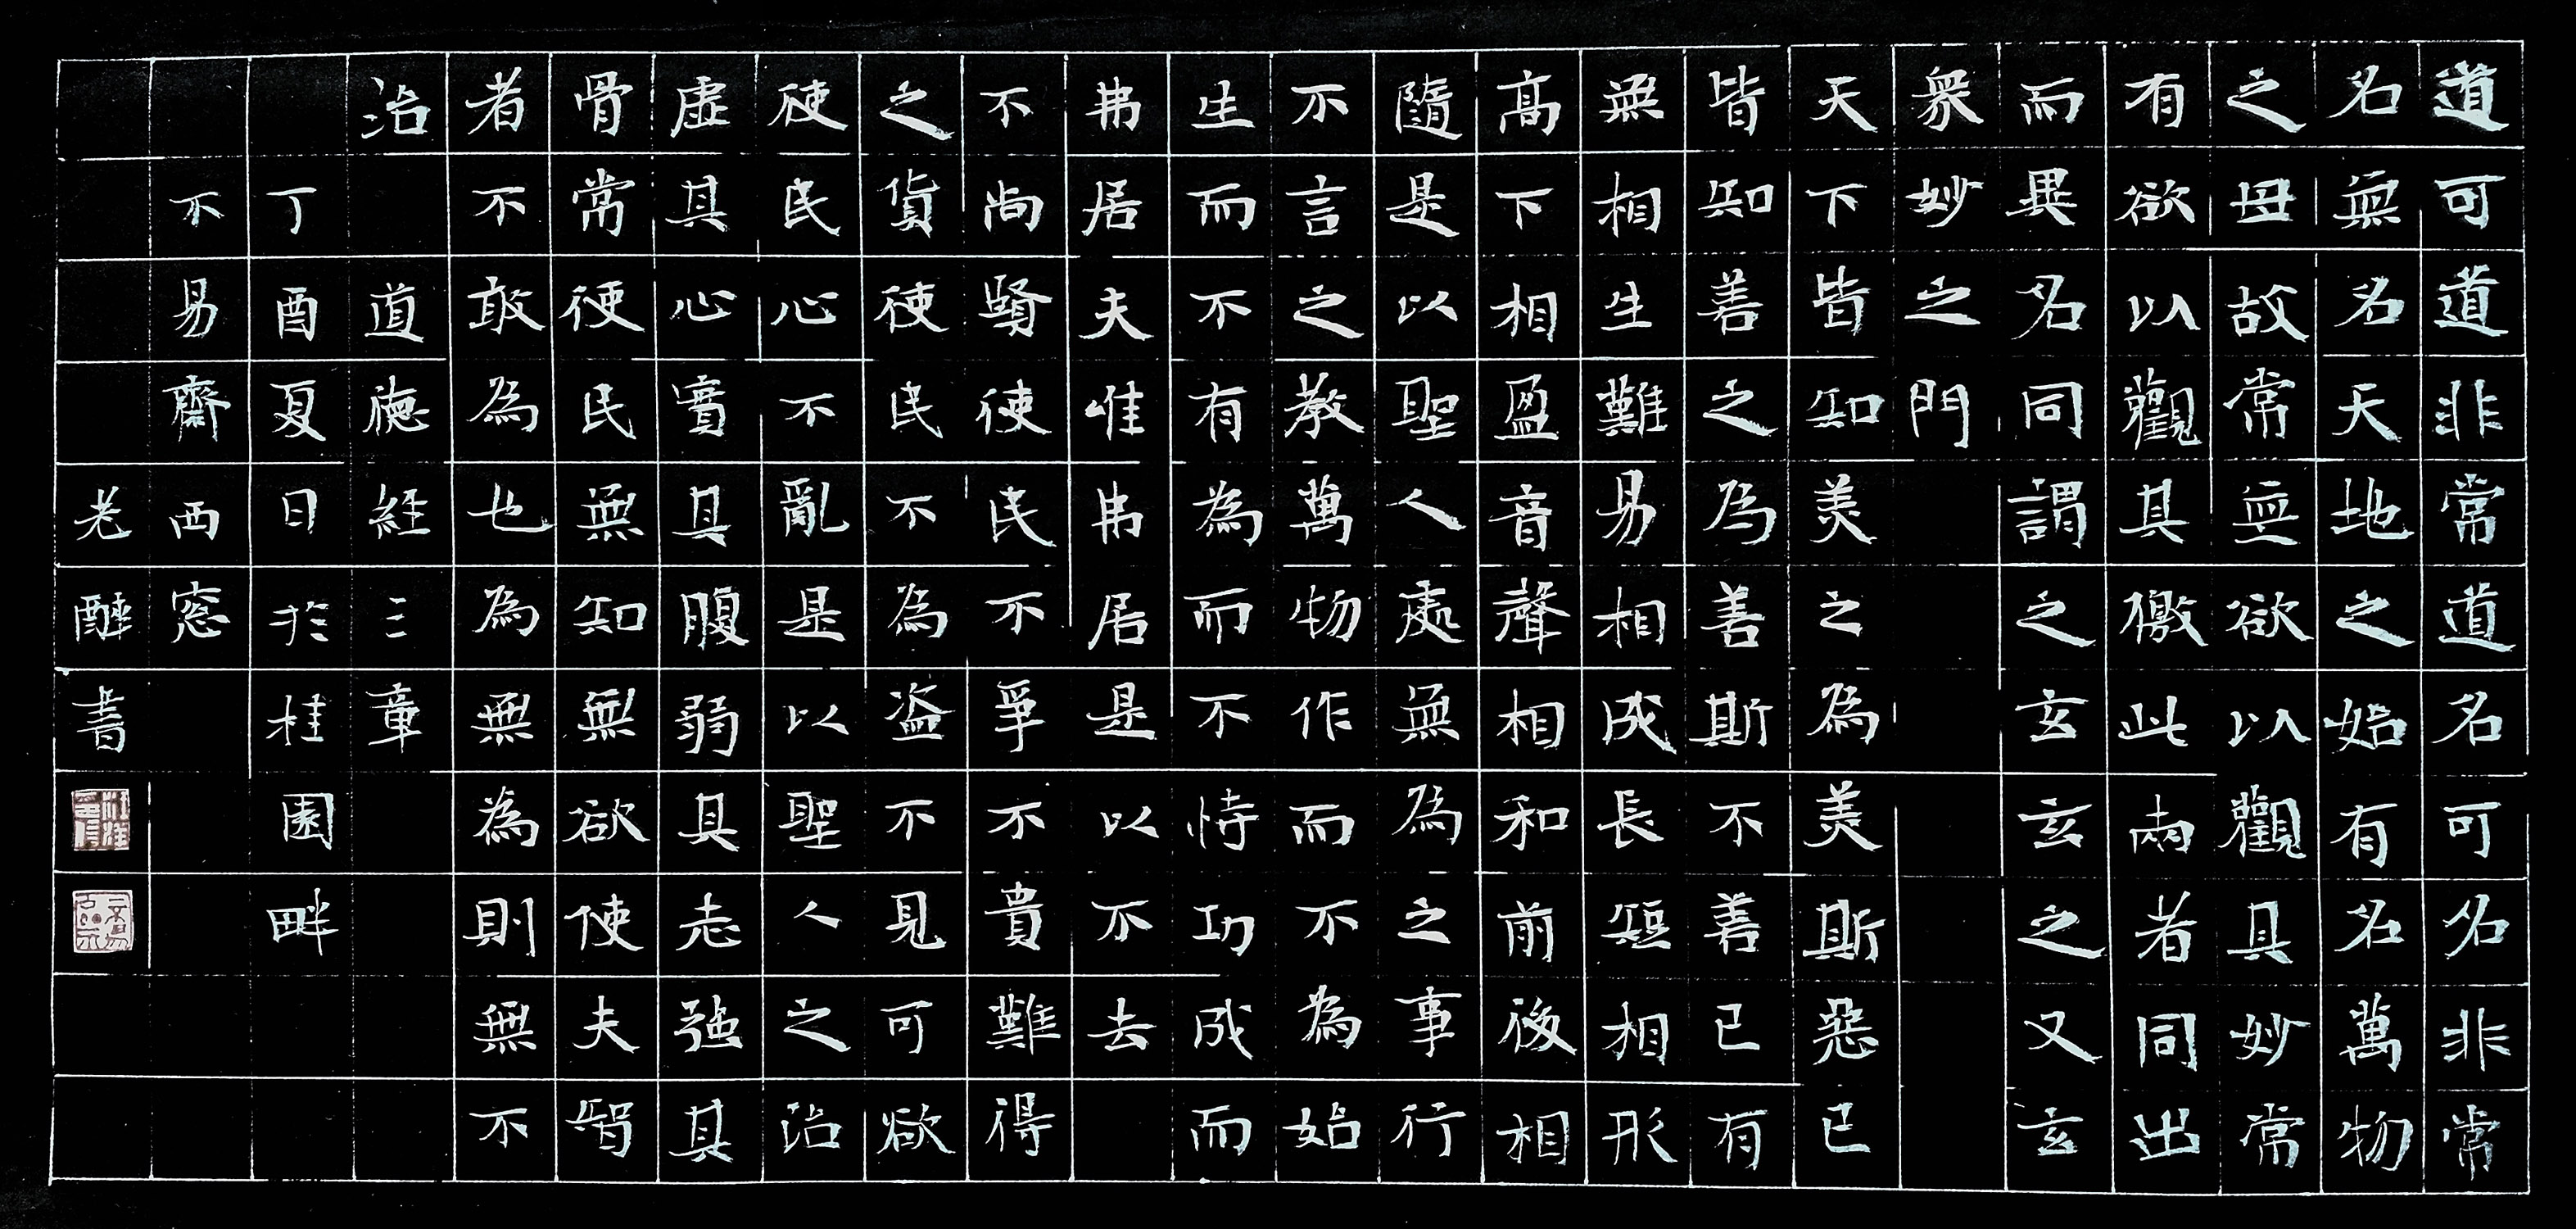 道可道非常道名可名非常
名無名天地之始有名萬物
之母故常無欲以觀其妙常
有欲以觀其徼此兩者同出
而異名同謂之玄玄之又玄
衆妙之門
天下皆知美之為美斯惡已
皆知善之為善斯不善已有
無相生難易相成長短相形
高下相盈音聲相和前後相
隨是以聖人處無為之事行
不言之教萬物作而不為始
生而不有為而不恃功成而
弗居夫唯弗居是以不去
不尚賢使民不爭不貴難得
之貨使民不為盗不見可欲
使民心不亂是以聖人之治
虛其心實其腹弱其志強其
骨常使民無知無欲使夫智
者不敢為也為無為則無不
治 道德經三章
丁酉夏日於桂園畔
不易齋西窓
老醉書